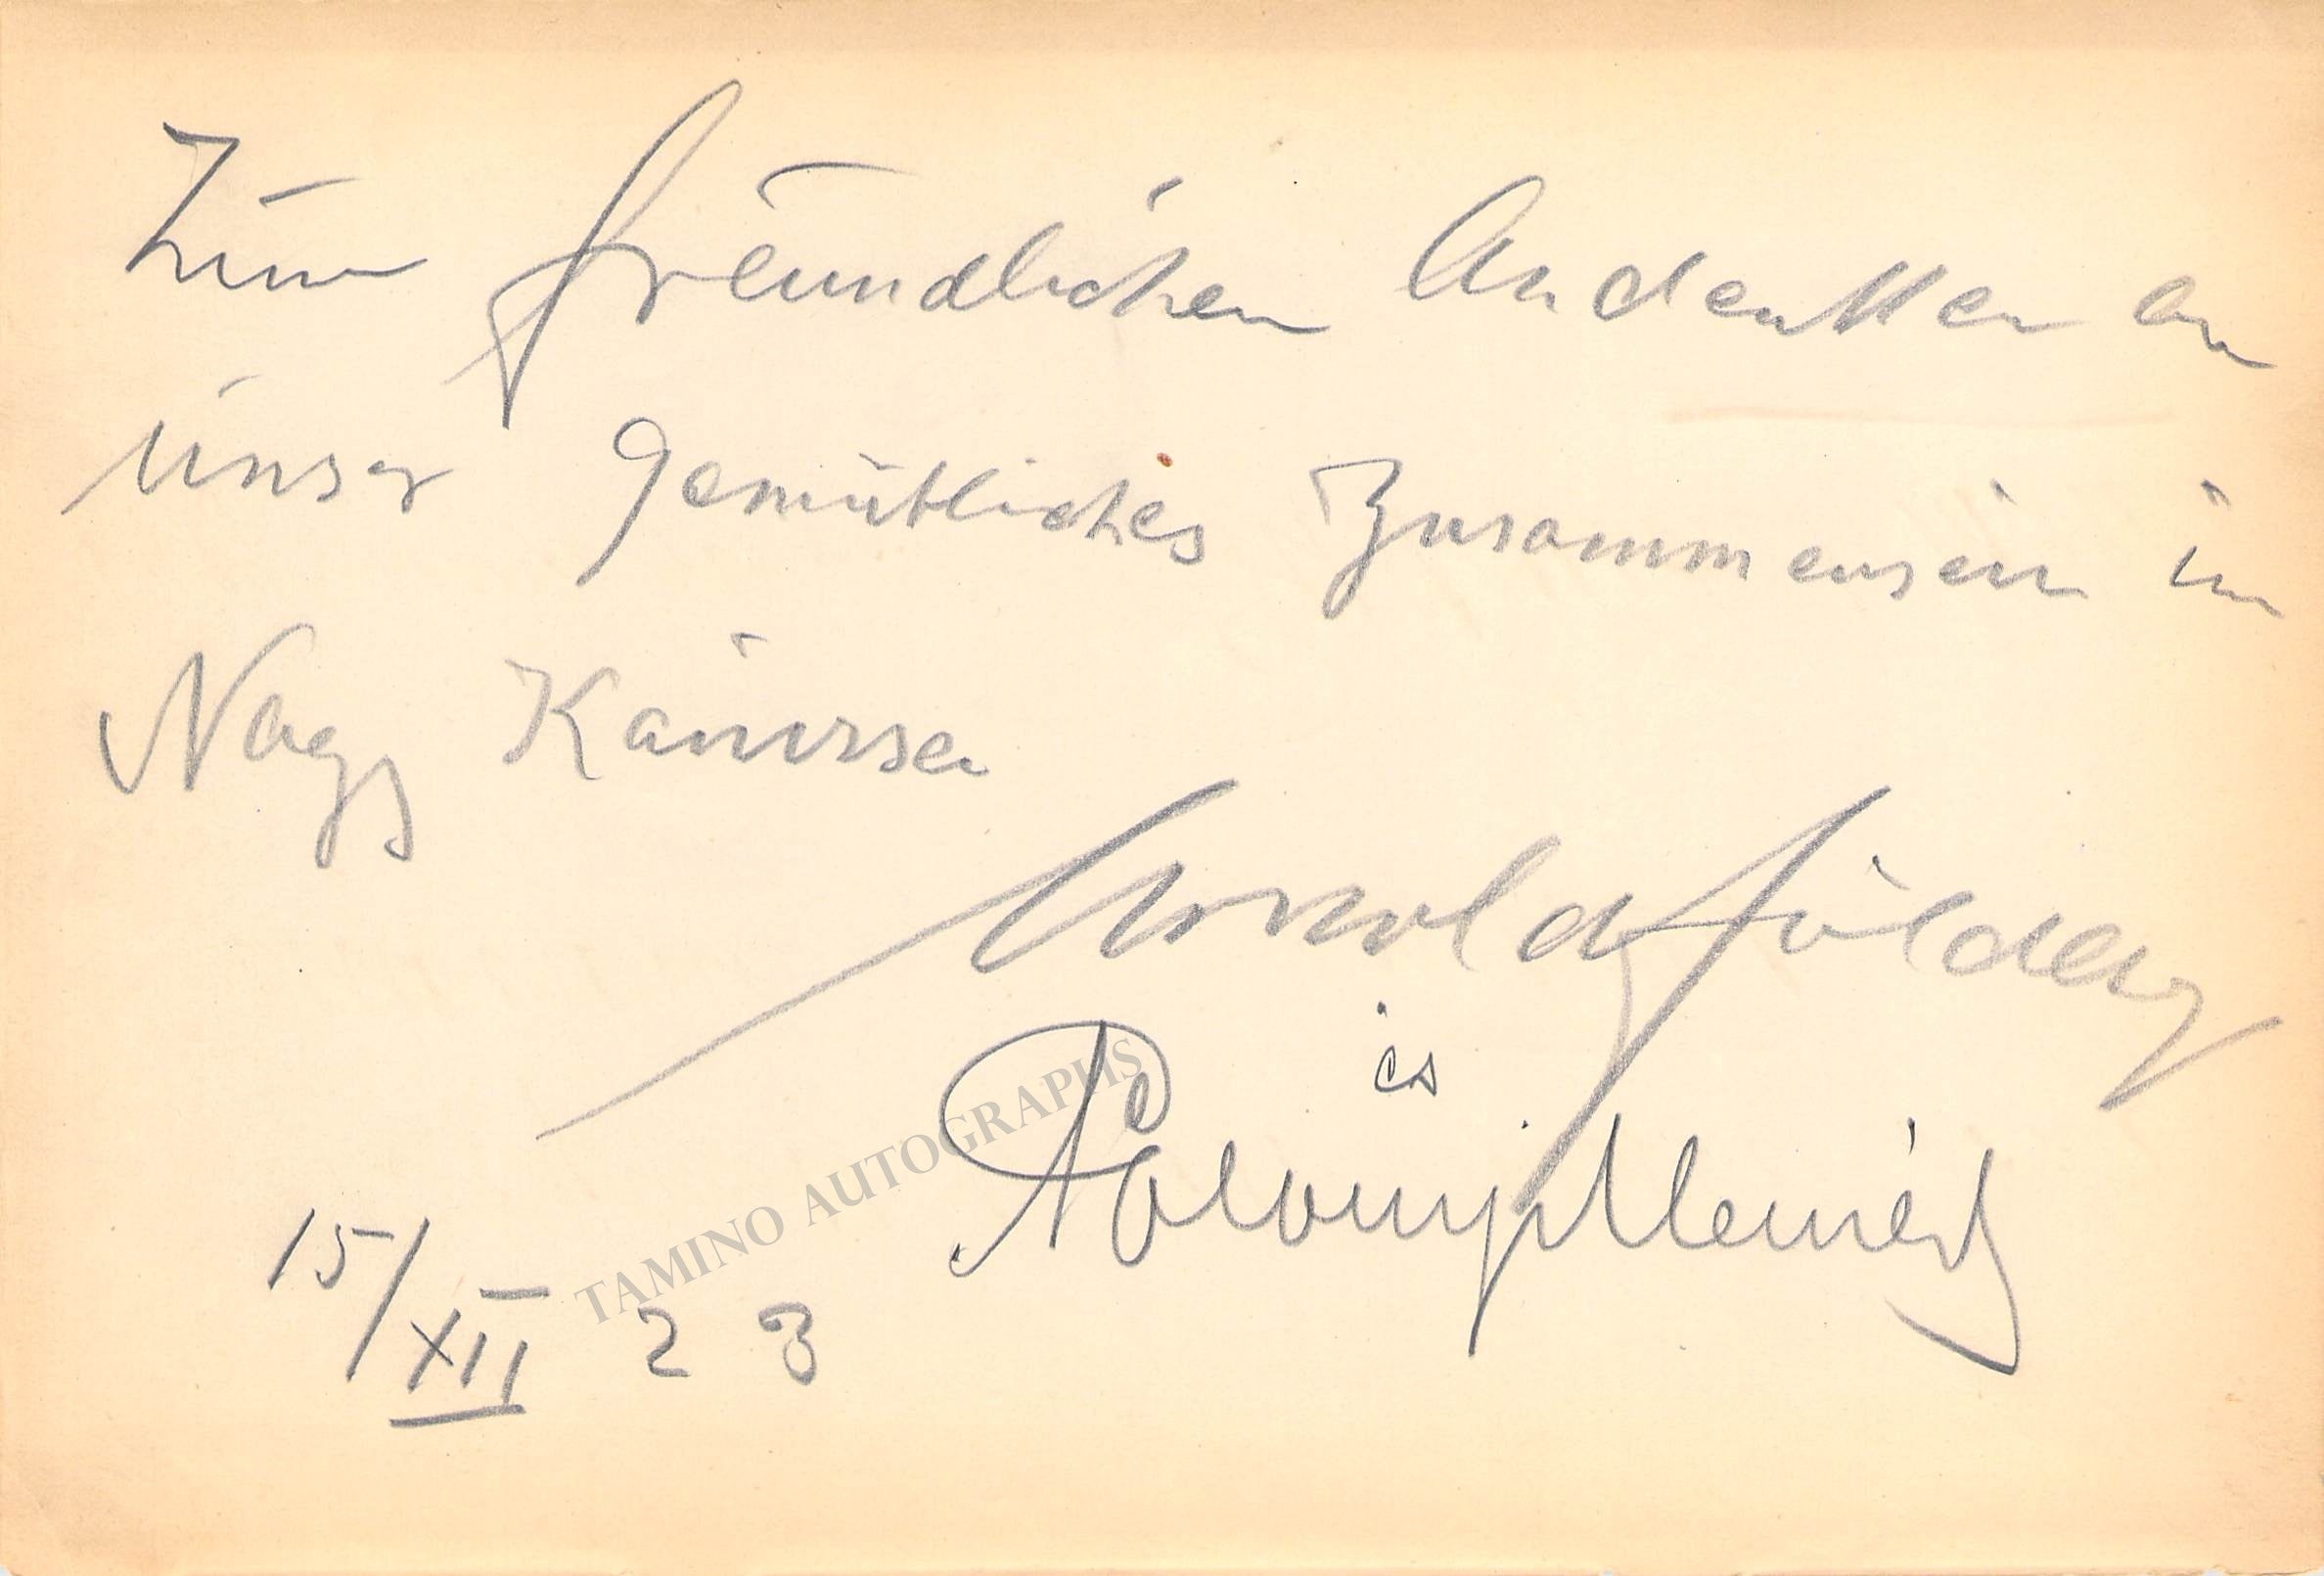 Zum freundlichen Andenken an
unser gemütliches Zusammensein in
Nagy Kanizsa
Arnold Földesy
és
Polonyi Elemér
15/XII 23
TAMINO AUTOGRAPHS